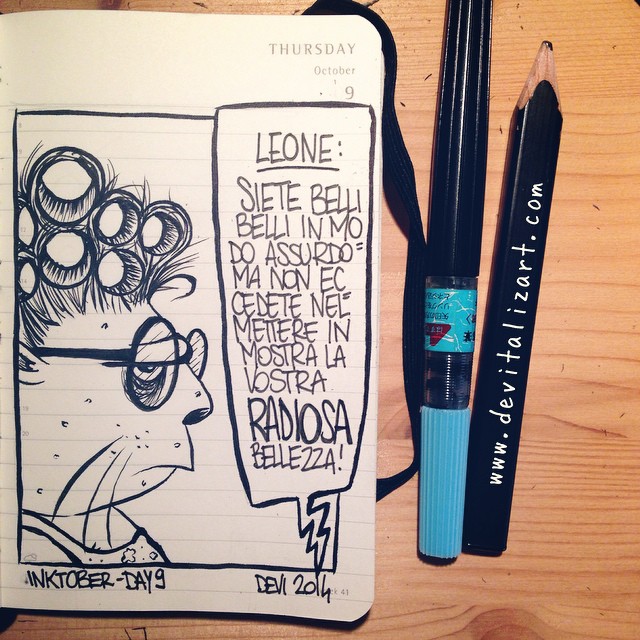 THURSDAY
October
9
LEONE:
SIETE BELLI
BELLI IN MO
DO ASSURDO=
MA NON EC
CEDETE NEL=
METTERE IN
MOSTRA LA
VOSTRA
RADIOSA
BELLEZZA!
INKTOBER-DAY9
DEVI 2014
www.devitalizart.com